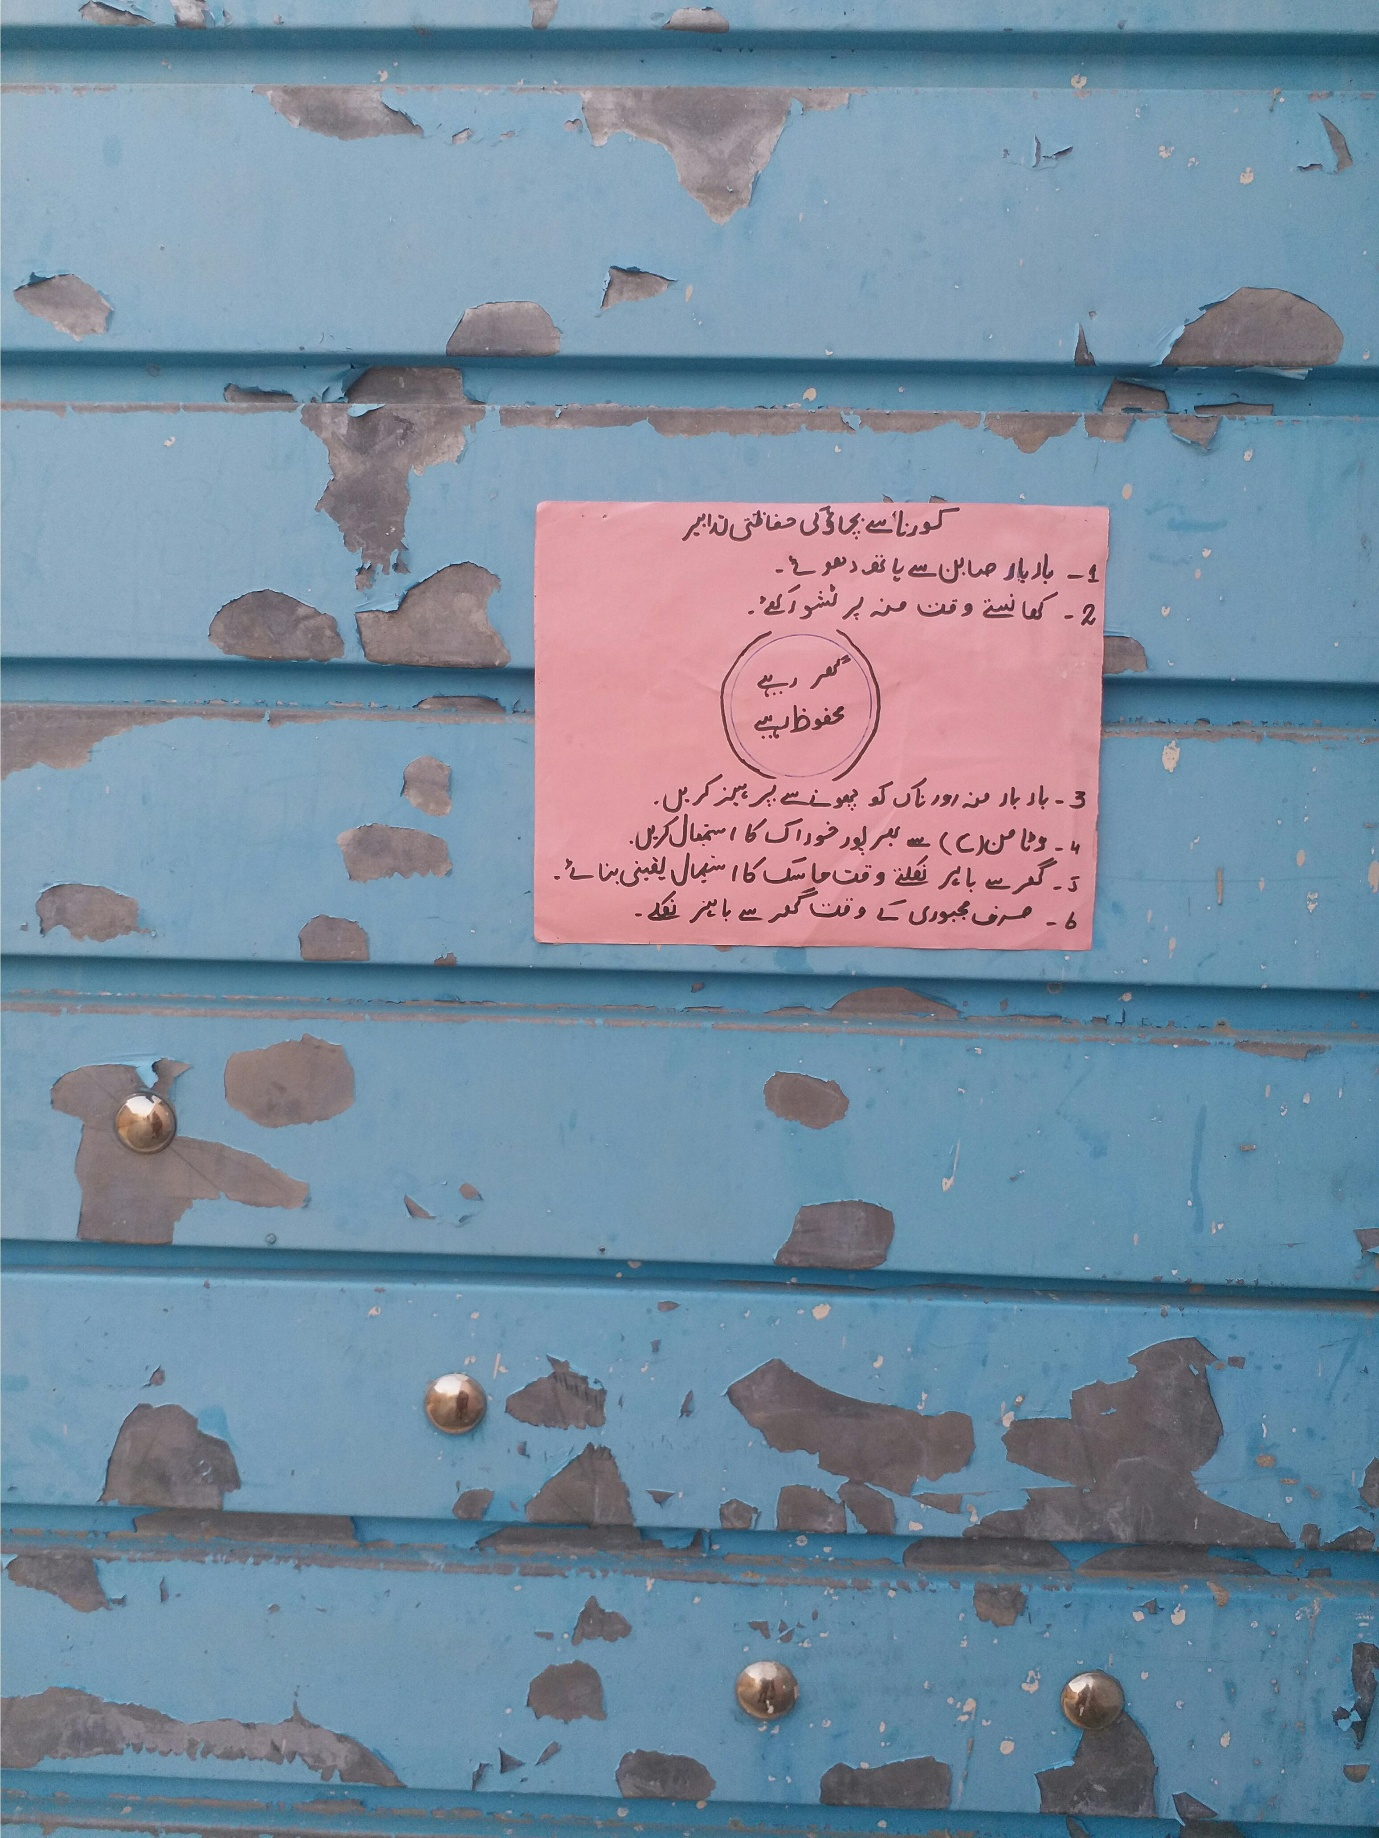 کورنا سے بچاؤ کی حفاظتی تدابیر
1- بار بار صابن سے ہاتھ دھوئے۔
2- کھانستے وقت منہ پر ٹشو رکھئے۔
گھر رہیے
محفوظ رہیے
3- بار بار منہ اور ناک کو چھونے سے پرہیز کریں۔
4- وٹامن (C) سے بھرپور خوراک کا استعمال کریں۔
5- گھر سے باہر نکلتے وقت ماسک کا استعمال یقینی بنائے۔
6- صرف مجبوری کے وقت گھر سے باہر نکلے۔